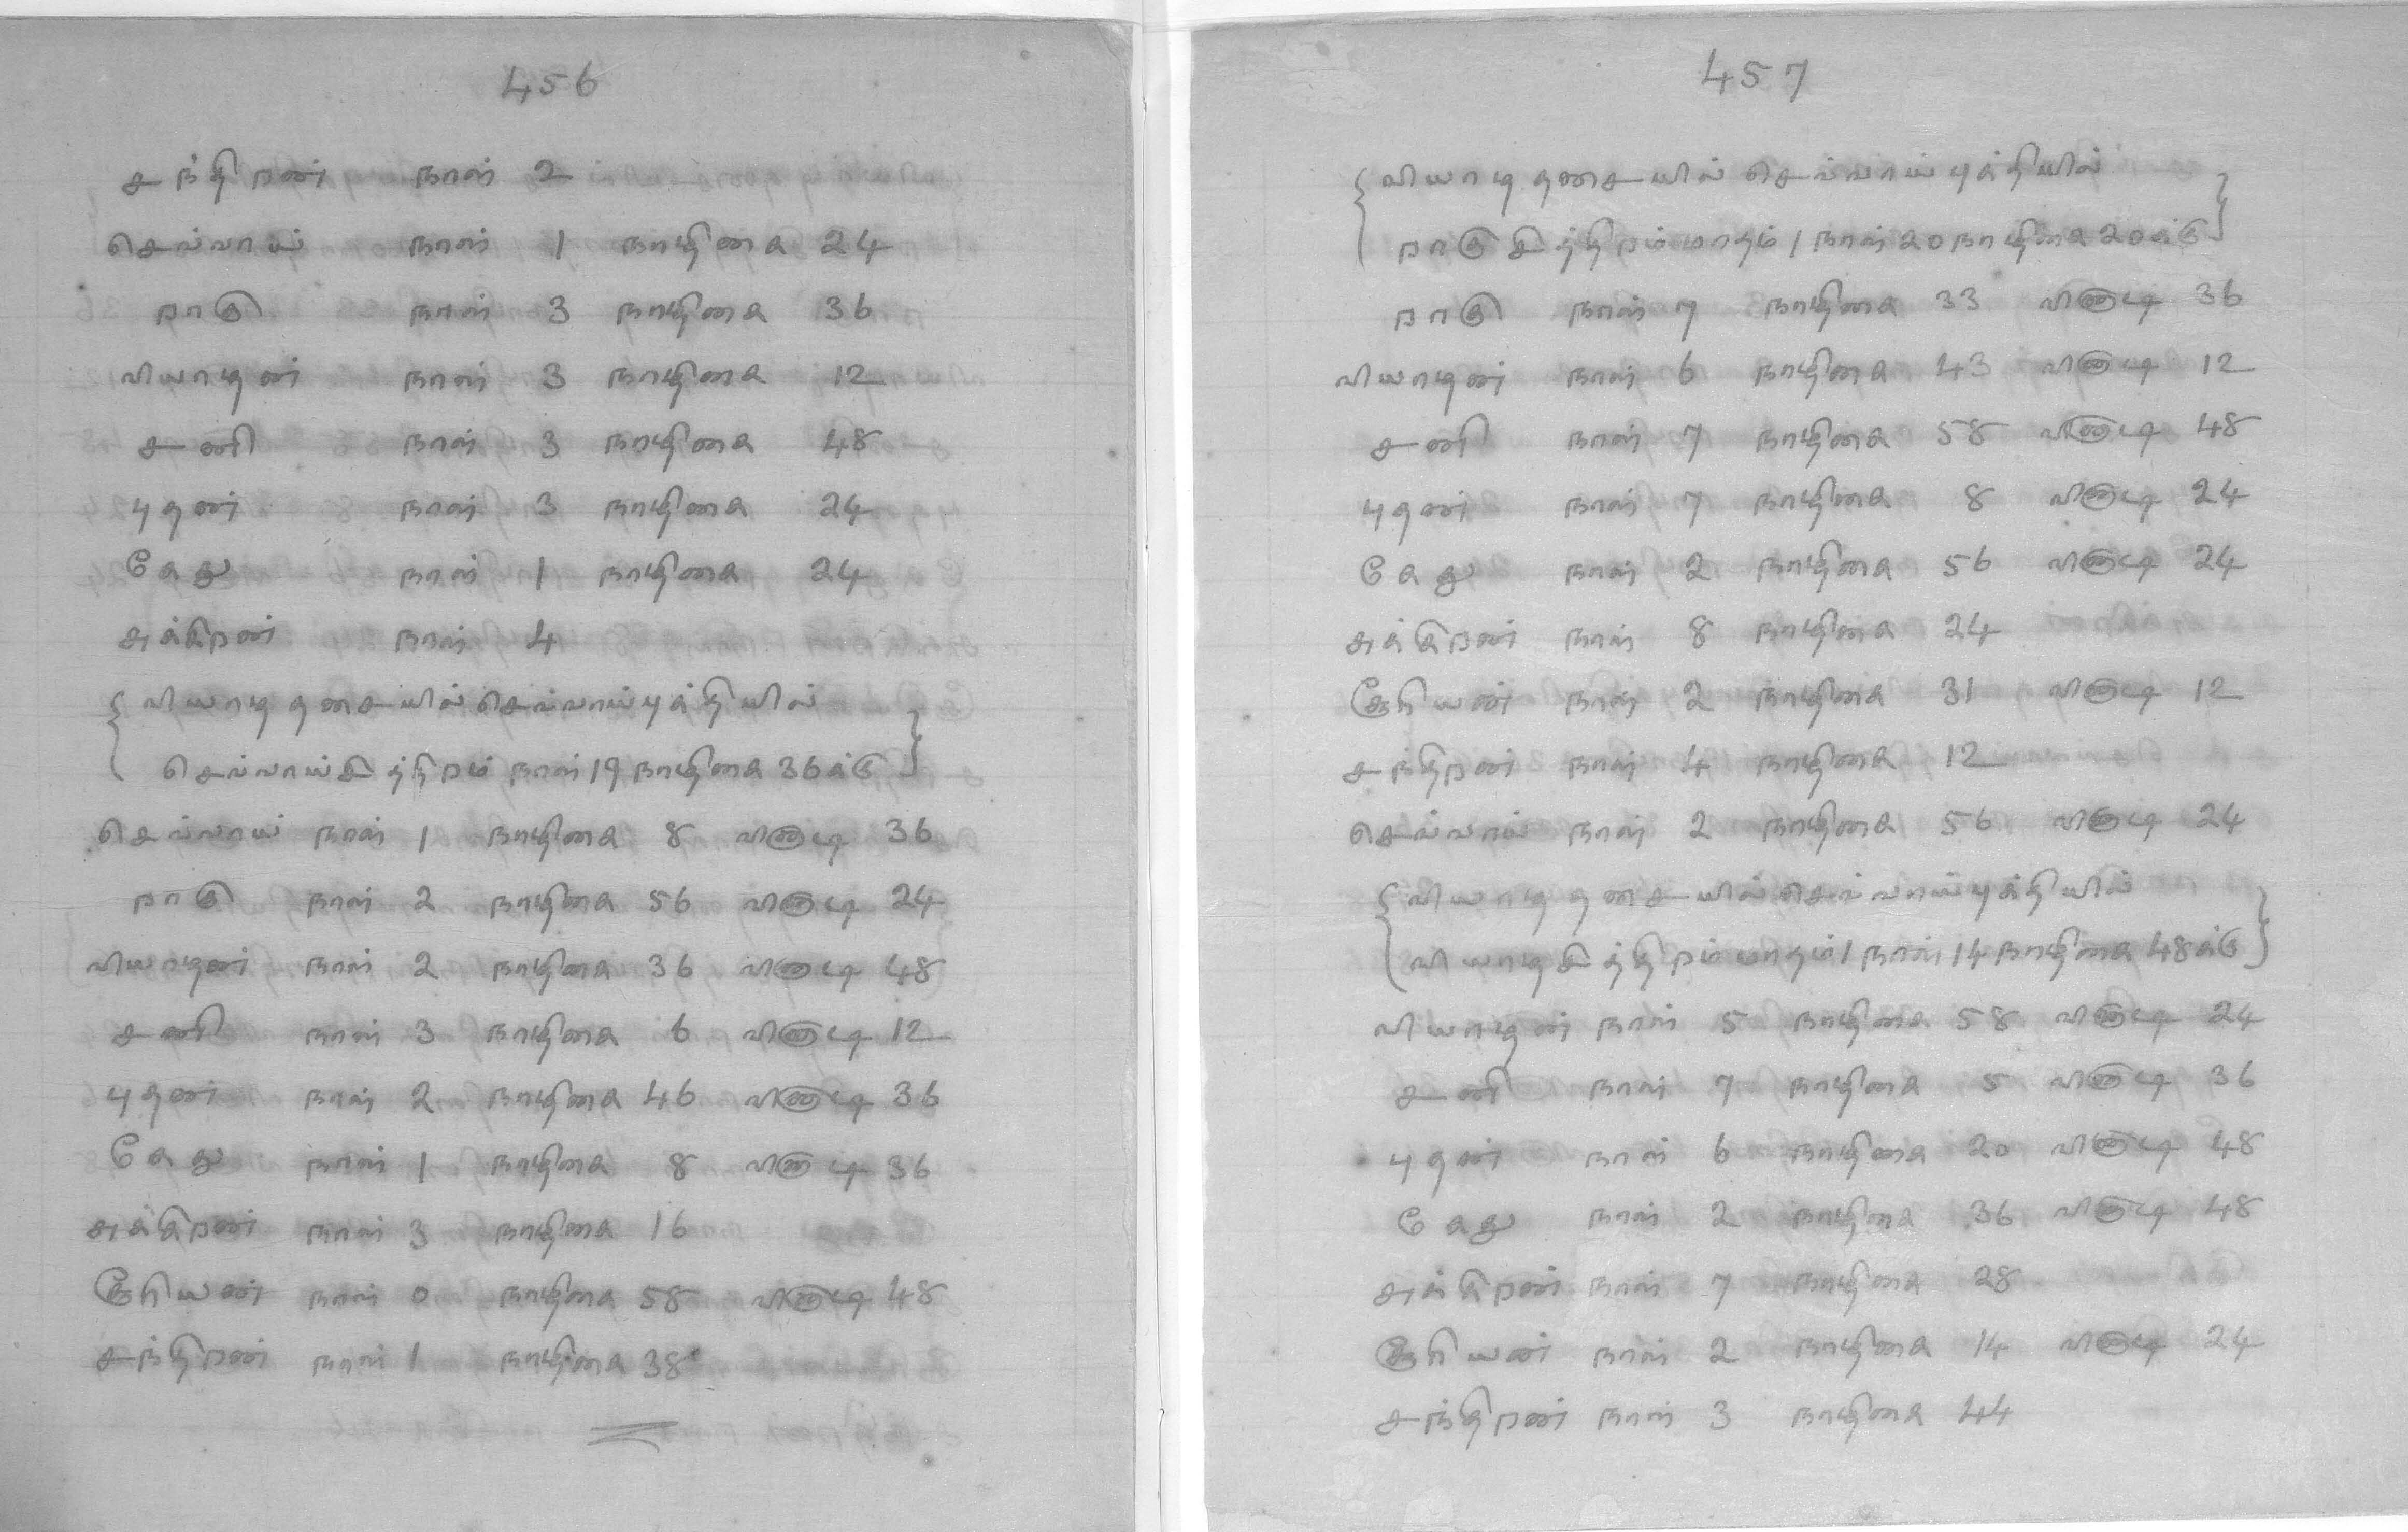 456
சந்திரன் நாள் 2
செவ்வாய் நாள் 1 நாழிகை 24
ராகு நாள் 3 நாழிகை 36
வியாழன் நாள் 3 நாழிகை 12
சனி நாள் 3 நாழிகை 48
புதன் நாள் 3 நாழிகை 24
கேது நாள் 1 நாழிகை 24
சுக்கிரன் நாள் 4
வியாழ தசையில் செவ்வாய் புக்தியில்
செவ்வாய் சித்திரம் நாள் 19 நாழிகை 36க்கு
செவ்வாய் நாள் 1 நாழிகை 8 வினாடி 36
ராகு நாள் 2 நாழிகை 56 வினாடி 24
வியாழன் நாள் 2 நாழிகை 36 வினாடி 48
சனி நாள் 3 நாழிகை 6 வினாடி 12
புதன் நாள் 2 நாழிகை 46 வினாடி 36
கேது நாள் 1 நாழிகை 8 வினாடி 36
சுக்கிரன் நாள் 3 நாழிகை 16
சூரியன் நாள் 0 நாழிகை 58 வினாடி 48
சந்திரன் நாள் 1 நாழிகை 38
457
வியாழ தசையில் செவ்வாய் புக்தியில்
ராகு சித்திரம் மாதம் 1 நாள் 20 நாழிகை 20க்கு
ராகு நாள் 7 நாழிகை 33 வினாடி 36
வியாழன் நாள் 6 நாழிகை 43 வினாடி 12
சனி நாள் 7 நாழிகை 58 வினாடி 48
புதன் நாள் 7 நாழிகை 8 வினாடி 24
கேது நாள் 2 நாழிகை 56 வினாடி 24
சுக்கிரன் நாள் 8 நாழிகை 24
சூரியன் நாள் 2 நாழிகை 31 வினாடி 12
சந்திரன் நாள் 4 நாழிகை 12
செவ்வாய் நாள் 2 நாழிகை 56 வினாடி 24
வியாழ தசையில் செவ்வாய் புக்தியில்
வியாழ சித்திரம் மாதம் 1 நாள் 14 நாழிகை 48க்கு
வியாழன் நாள் 5 நாழிகை 58 வினாடி 24
சனி நாள் 7 நாழிகை 5 வினாடி 36
புதன் நாள் 6 நாழிகை 20 வினாடி 48
கேது நாள் 2 நாழிகை 36 வினாடி 48
சுக்கிரன் நாள் 7 நாழிகை 28
சூரியன் நாள் 2 நாழிகை 14 வினாடி 24
சந்திரன் நாள் 3 நாழிகை 44